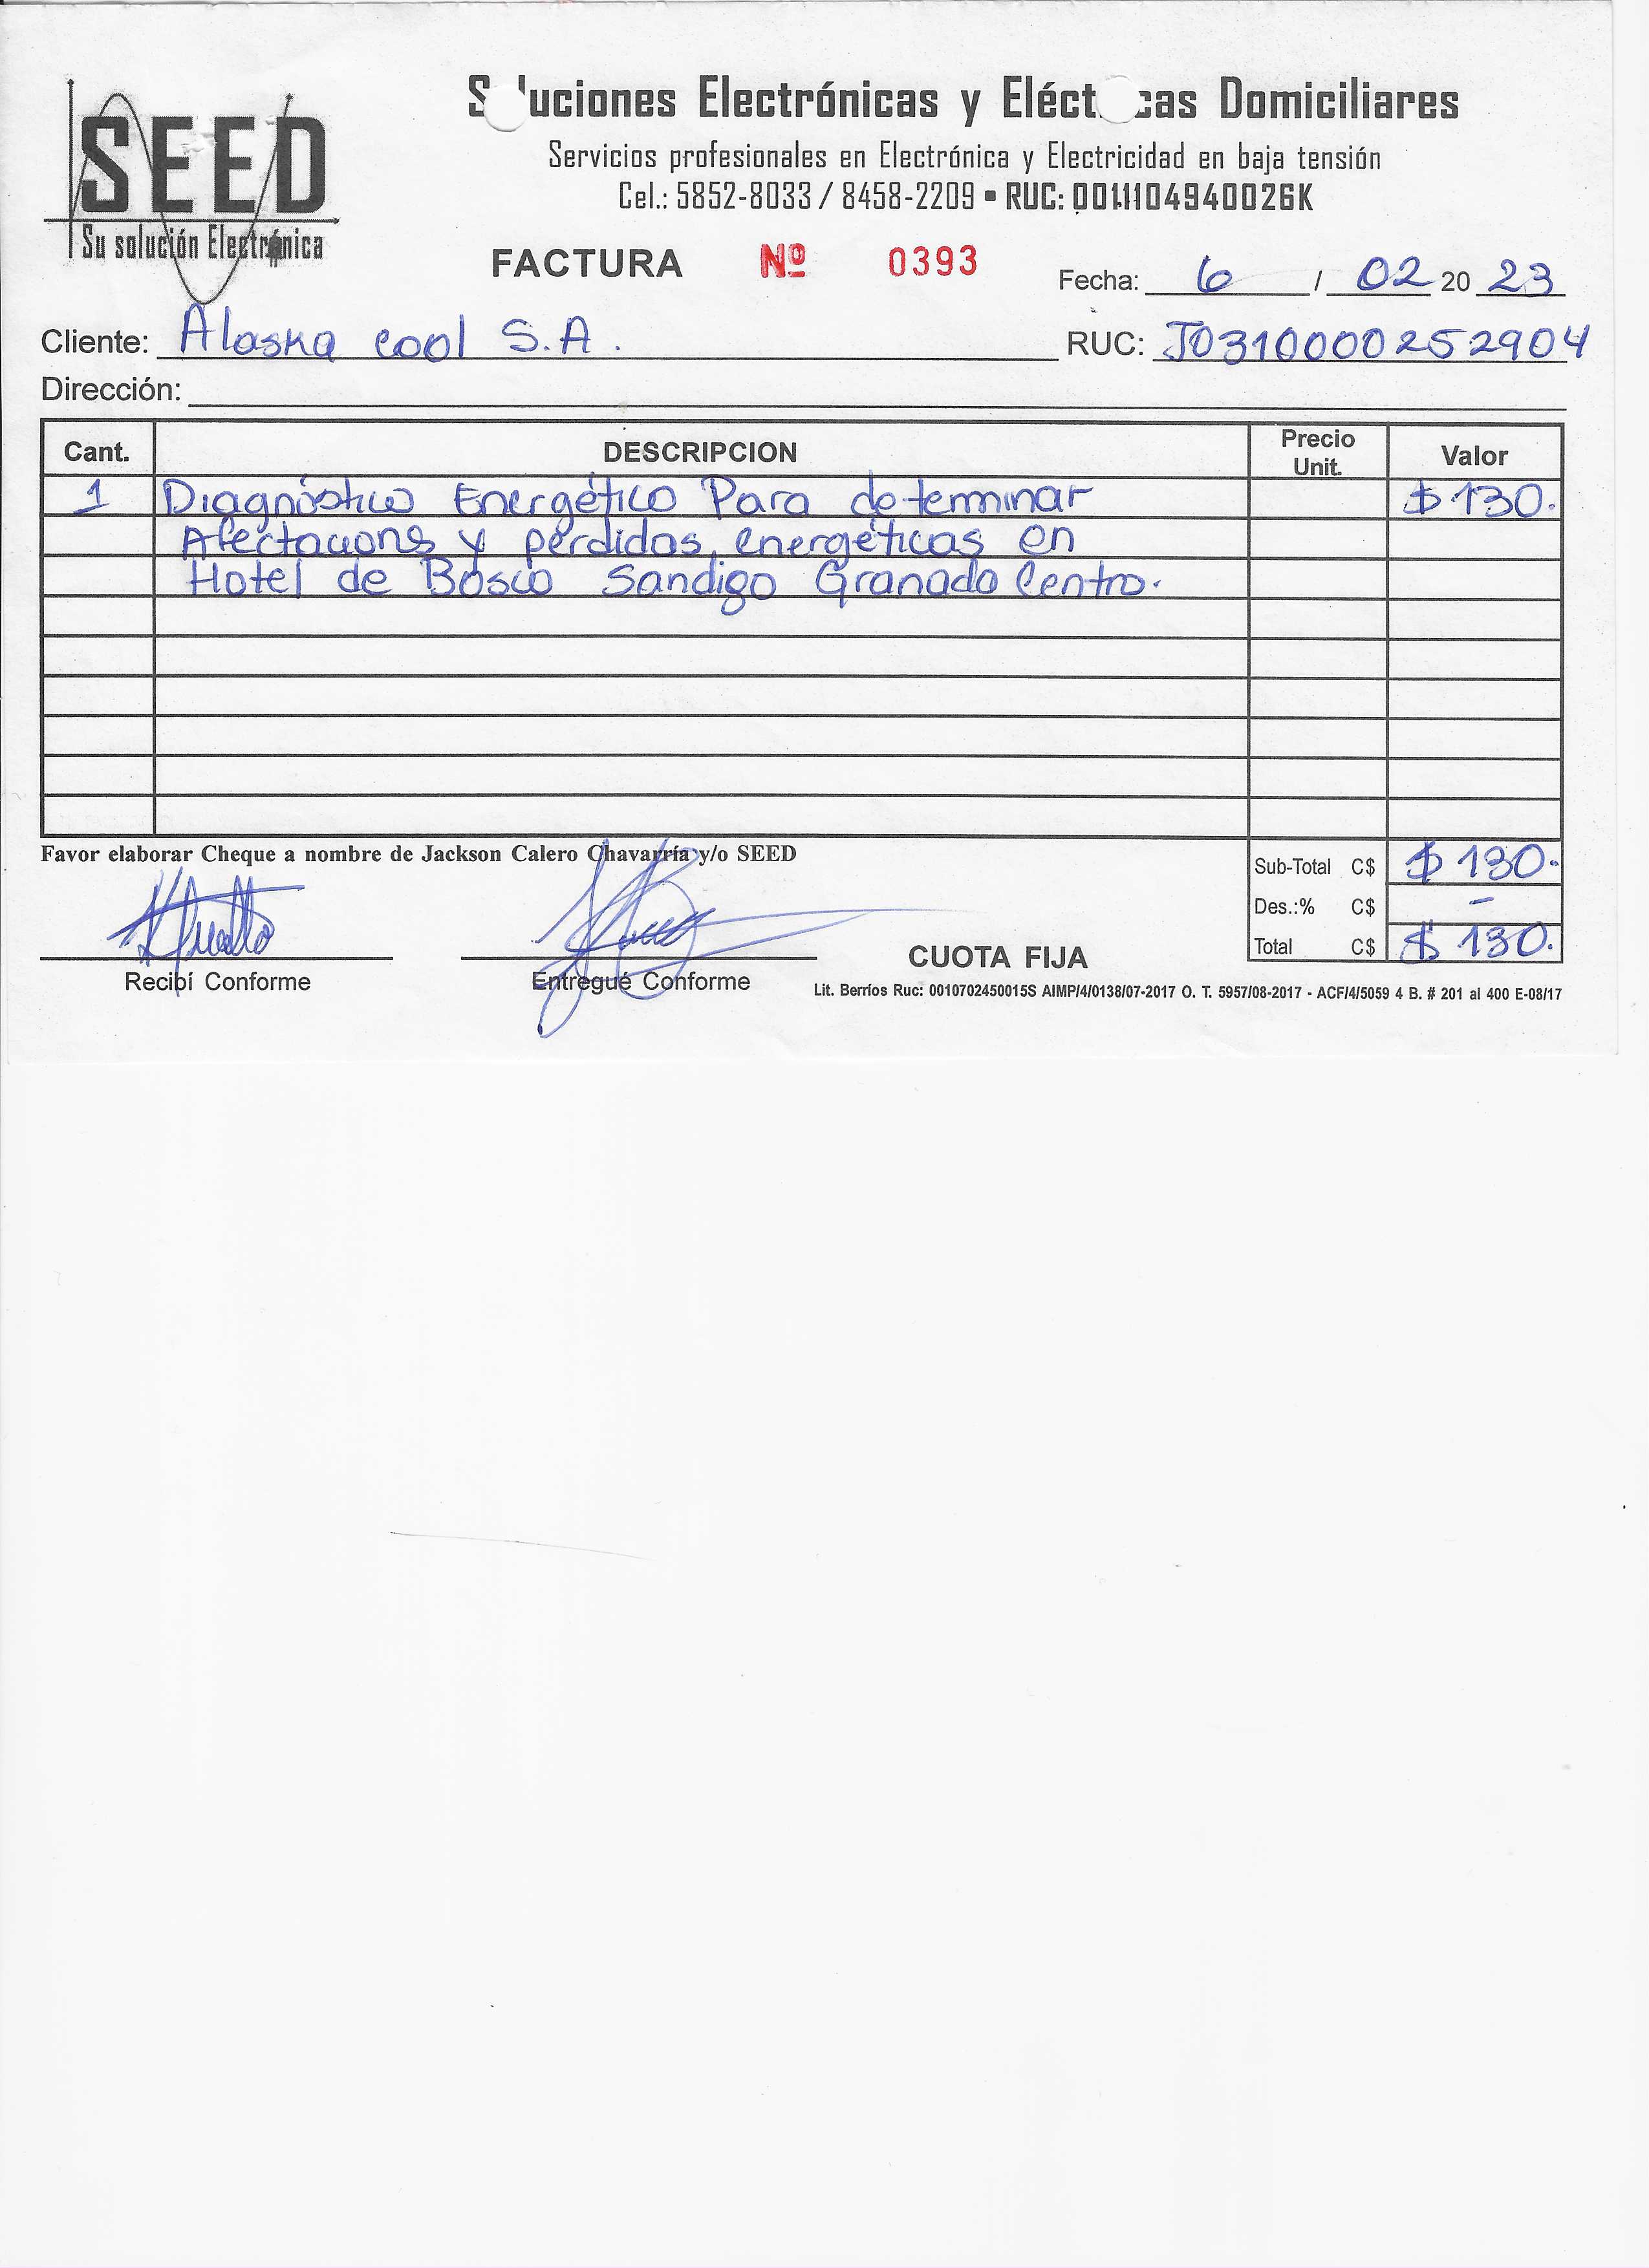 SEED
Su solución Electrónica
Soluciones Electrónicas y Eléctricas Domiciliares
Servicios profesionales en Electrónica y Electricidad en baja tensión
Cel.: 5852-8033 / 8458-2209 ▪ RUC: 0011104940026K
FACTURA Nº 0393
Fecha: 6 / 02 20 23
Cliente: Alaska cool S.A.
RUC: J0310000252904
Dirección:
Cant. DESCRIPCION Precio Unit. Valor
1 Diagnóstico Energético Para determinar $ 130.
Afectacions y pérdidas energéticas en
Hotel de Bosco Sandigo Granada Centro.
Favor elaborar Cheque a nombre de Jackson Calero Chavarría y/o SEED
Sub-Total C$ $ 130.
Des.:% C$ -
Total C$ $ 130.
Recibí Conforme
Entregué Conforme
CUOTA FIJA
Lit. Berríos Ruc: 0010702450015S AIMP/4/0138/07-2017 O. T. 5957/08-2017 - ACF/4/5059 4 B. # 201 al 400 E-08/17